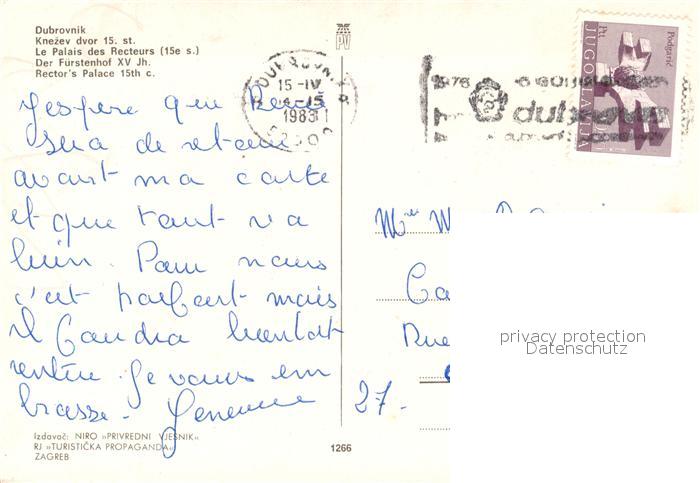 Dubrovnik
Knežev dvor 15. st.
Le Palais des Recteurs (15e s.)
Der Fürstenhof XV Jh.
Rector's Palace 15th c.
PV
15-IV
1983
dubrovnik
Podgarić
JUGOSLAVIJA
J'espère que René
sera de retour
avant ma carte
et que tout va
bien. Pour nous
c'est parfait mais
il faudra bientôt
rentrer. Je vous em
brasse.
Rue
27.
privacy protection
Datenschutz
Izdavač: NIRO »PRIVREDNI VJESNIK«
RJ »TURISTIČKA PROPAGANDA«
ZAGREB
1266